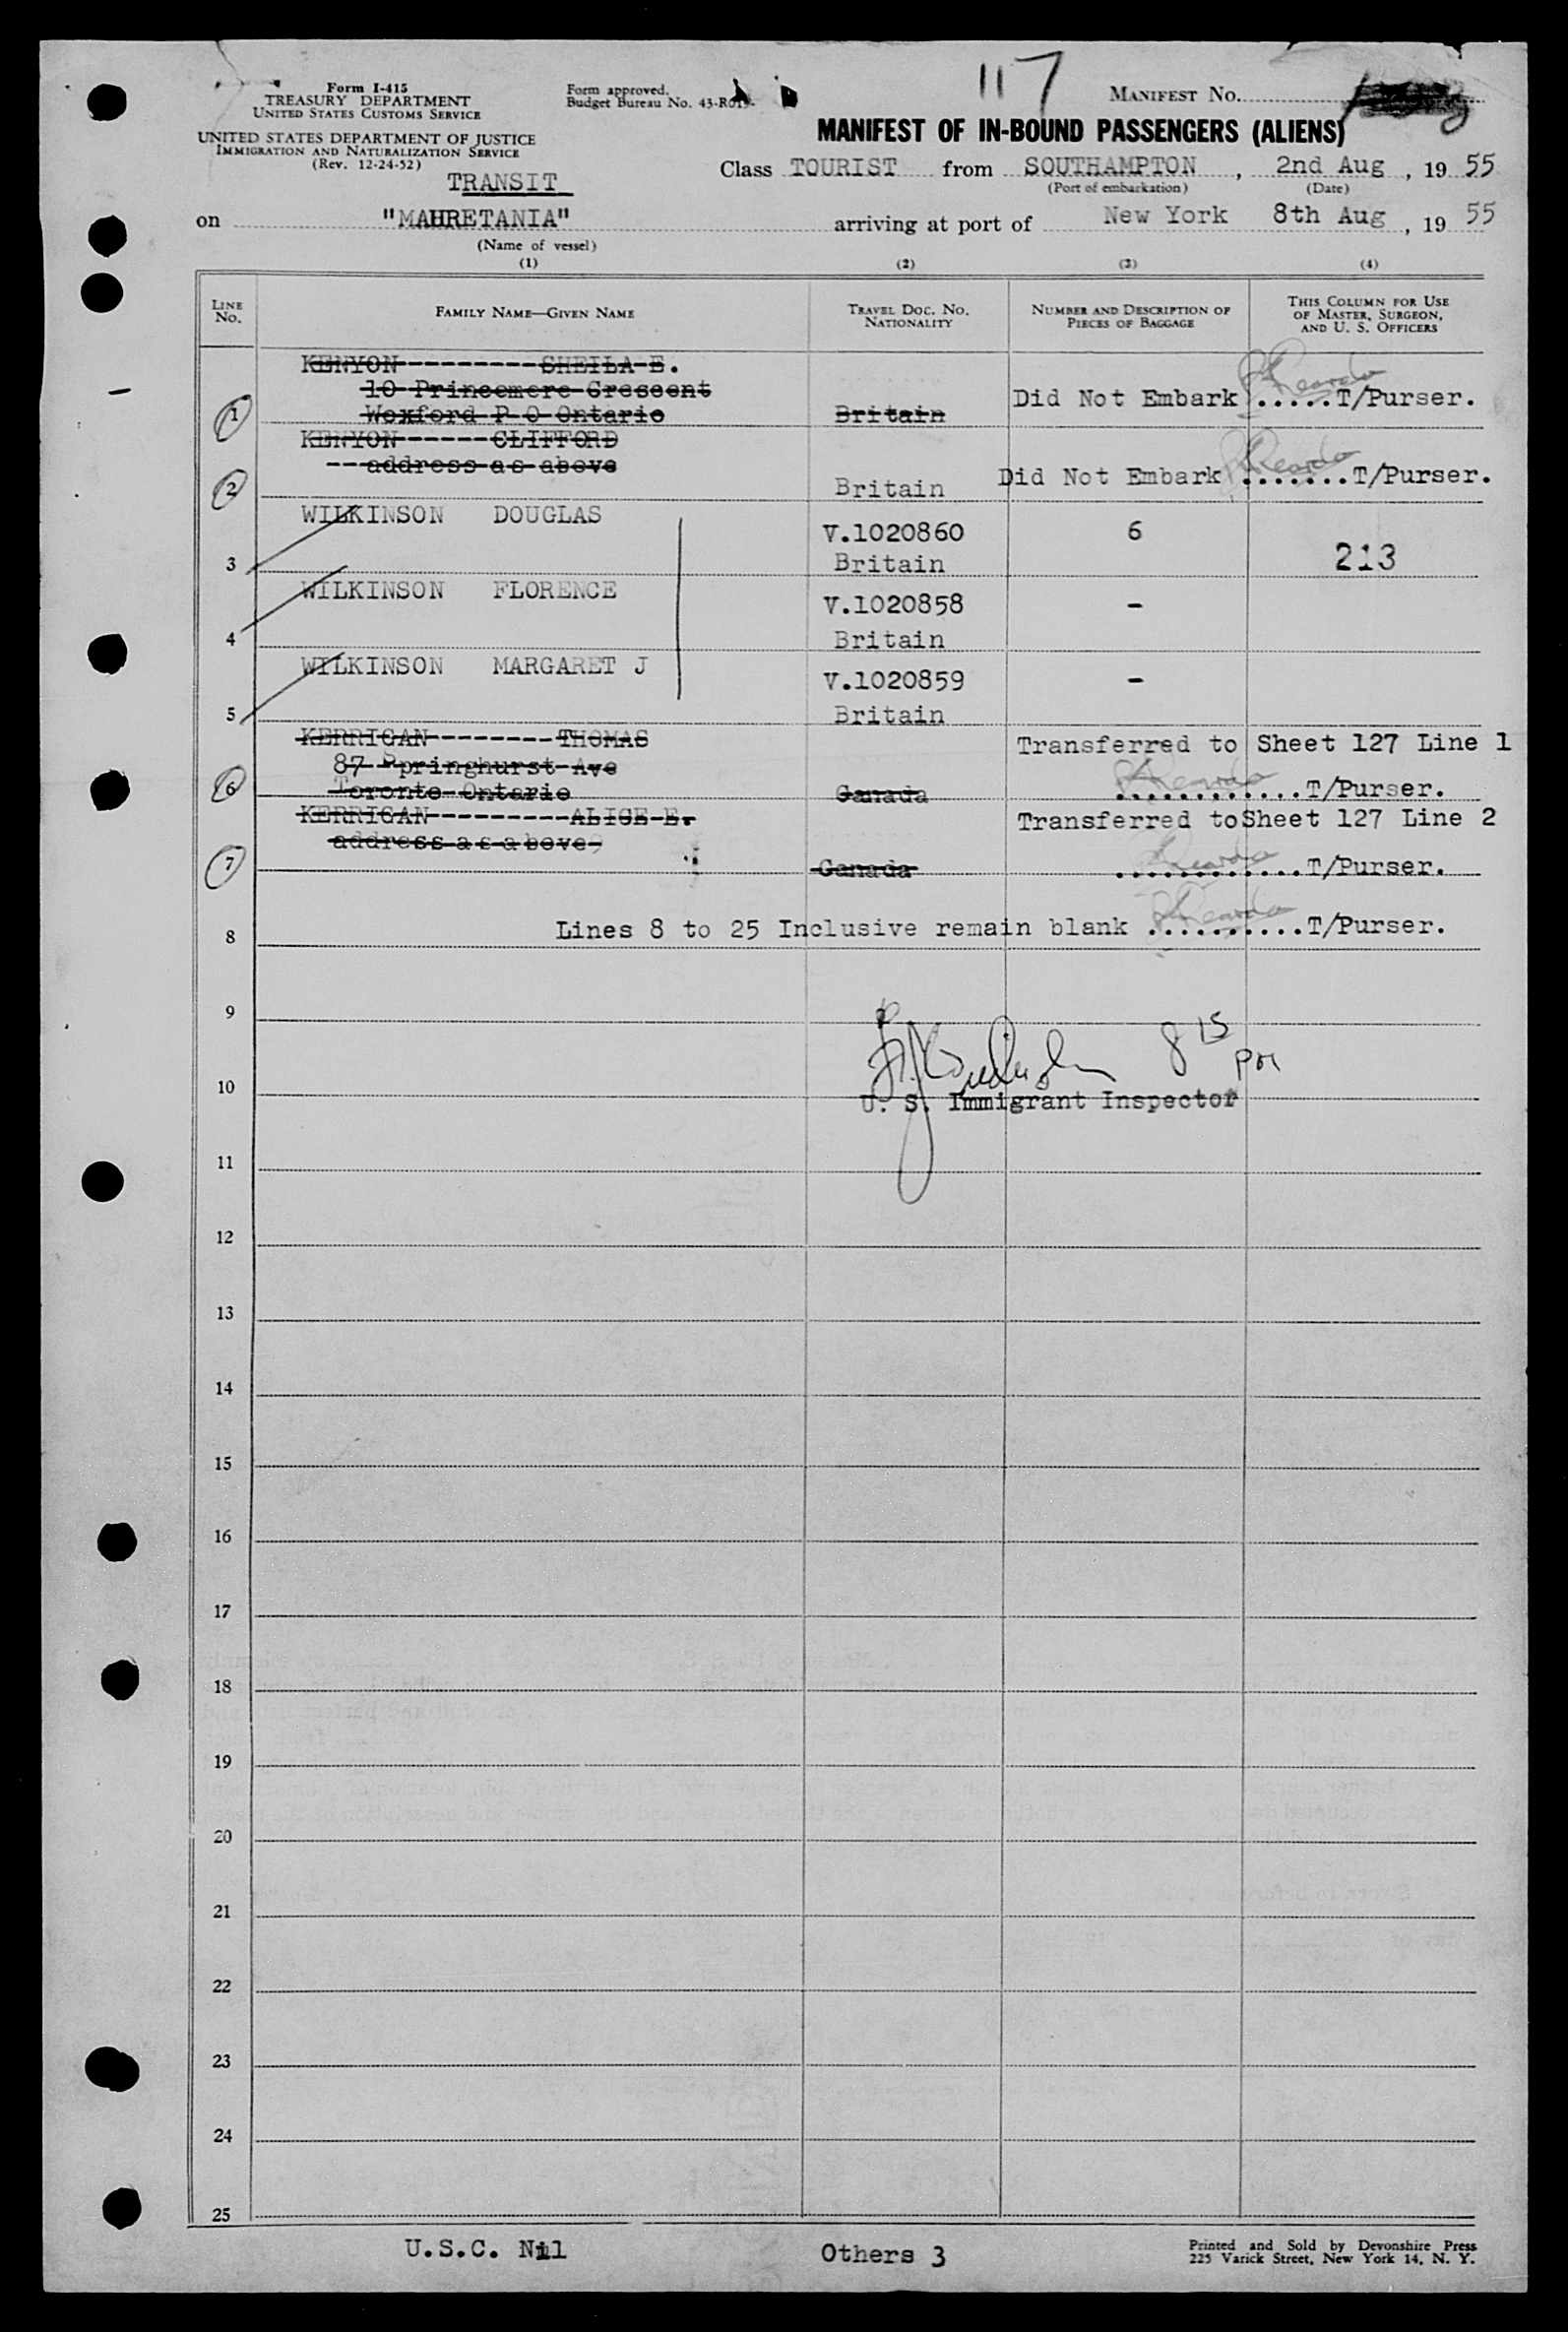 117
Form I-415
TREASURY DEPARTMENT
UNITED STATES CUSTOMS SERVICE
UNITED STATES DEPARTMENT OF JUSTICE
IMMIGRATION AND NATURALIZATION SERVICE
(Rev. 12-24-52)
Form approved.
Budget Bureau No. 43-R
MANIFEST No.
MANIFEST OF IN-BOUND PASSENGERS (ALIENS)
Class TOURIST from SOUTHAMPTON, 2nd Aug, 1955
(Port of embarkation) (Date)
TRANSIT
on "MAURETANIA" arriving at port of New York 8th Aug, 1955
(Name of vessel)
(1) (2) (3) (4)
LINE No. FAMILY NAME—GIVEN NAME TRAVEL DOC. No. NATIONALITY NUMBER AND DESCRIPTION OF PIECES OF BAGGAGE THIS COLUMN FOR USE OF MASTER, SURGEON, AND U. S. OFFICERS
KENYON---------SHEILA E.
10 Princemere Crescent
1 Wexford P O Ontario Britain Did Not Embark .....T/Purser.
KENYON------CLIFFORD
---address as above
2 Britain Did Not Embark .......T/Purser.
WILKINSON DOUGLAS V.1020860 6
3 Britain 213
WILKINSON FLORENCE V.1020858 -
4 Britain
WILKINSON MARGARET J V.1020859 -
5 Britain
KERRIGAN--------THOMAS Transferred to Sheet 127 Line 1
87 Springhurst Ave
6 Toronto Ontario Canada ............T/Purser.
KERRIGAN---------ALICE E. Transferred to Sheet 127 Line 2
address as above
7 Canada ............T/Purser.
8 Lines 8 to 25 Inclusive remain blank ..........T/Purser.
9
8 15 PM
10 U. S. Immigrant Inspector
11
12
13
14
15
16
17
18
19
20
21
22
23
24
25
U.S.C. Nil Others 3
Printed and Sold by Devonshire Press
225 Varick Street, New York 14, N. Y.